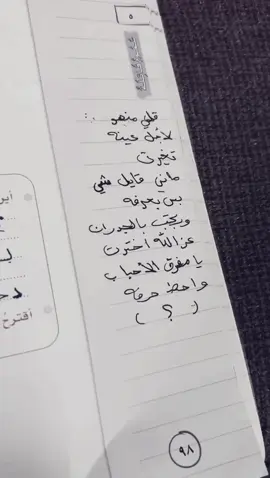 ٥
قلي منهو ..
لاجل عينه
تخيرت
ماني قايل شي
بس بعرفه
ويكتب بالجدران
عز الله اخترت
يا مفرق الاحباب
واحط حرفه
( ؟ )
٩٨
أقترح